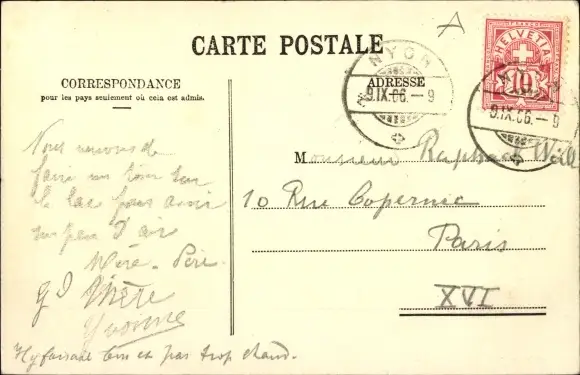 CARTE POSTALE
CORRESPONDANCE
pour les pays seulement où cela est admis.
ADRESSE
NYON
9.IX.06.-9
HELVETIA
10
NYON
9.IX.06.-9
A
Nous venons de
faire un tour sur
le lac pour avoir
un peu d'air
Mère - Père
Yvonne
bon et pas trop chaud.
Monsieur Raphael Weil
10 Rue Copernic
Paris
XVI